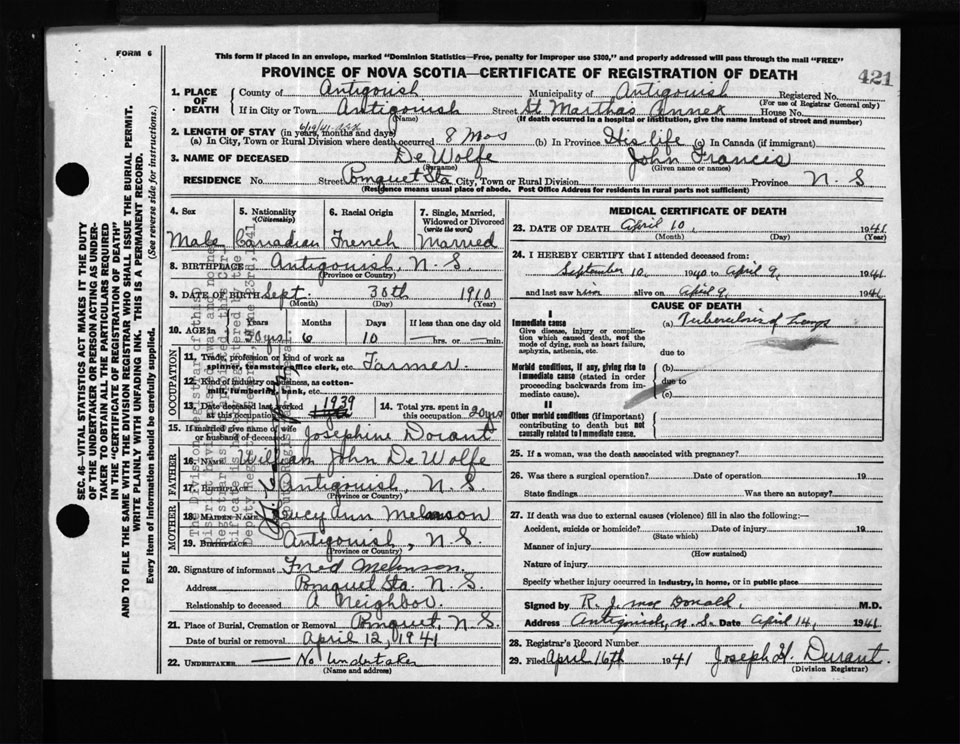 FORM 6
This form if placed in an envelope, marked "Dominion Statistics—Free, penalty for improper use $300," and properly addressed will pass through the mail "FREE"
PROVINCE OF NOVA SCOTIA—CERTIFICATE OF REGISTRATION OF DEATH
421
SEC. 46—VITAL STATISTICS ACT MAKES IT THE DUTY
OF THE UNDERTAKER OR PERSON ACTING AS UNDER-
TAKER TO OBTAIN ALL THE PARTICULARS REQUIRED
IN THE "CERTIFICATE OF REGISTRATION OF DEATH"
AND TO FILE THE SAME WITH THE DIVISION REGISTRAR WHO SHALL ISSUE THE BURIAL PERMIT.
WRITE PLAINLY WITH UNFADING INK. THIS IS A PERMANENT RECORD.
Every item of information should be carefully supplied. (See reverse side for instructions.)
1. PLACE OF DEATH
County of Antigonish Municipality of Antigonish Registered No.
(For use of Registrar General only)
If in City or Town Antigonish Street St Marthas Annex House No.
(Name) (If death occurred in a hospital or institution, give the name instead of street and number)
2. LENGTH OF STAY (in years, months and days)
(a) In City, Town or Rural Division where death occurred 8 mos (b) In Province His life (c) In Canada (if immigrant)
3. NAME OF DECEASED De Wolfe John Francis
(Surname) (Given name or names)
RESIDENCE No. Street Pomquet Sta City, Town or Rural Division Province N. S
(Residence means usual place of abode. Post Office Address for residents in rural parts not sufficient)
4. Sex 5. Nationality (Citizenship) 6. Racial Origin 7. Single, Married, Widowed or Divorced (write the word)
Male Canadian French Married
8. BIRTHPLACE Antigonish, N. S.
(Province or Country)
9. DATE OF BIRTH Sept. 30th 1910
(Month) (Day) (Year)
10. AGE in Years Months Days If less than one day old
30 yrs 6 10 hrs. or min.
OCCUPATION
11. Trade, profession or kind of work as spinner, teamster, office clerk, etc. Farmer.
12. Kind of industry or business, as cotton-mill, lumbering, bank, etc.
13. Date deceased last worked at this occupation 1939
14. Total yrs. spent in this occupation 20 yrs
15. If married give name of wife or husband of deceased Josephine Dorant
FATHER
16. NAME William John De Wolfe
17. BIRTHPLACE Antigonish, N. S.
(Province or Country)
MOTHER
18. MAIDEN NAME Lucy Ann Melanson
19. BIRTHPLACE Antigonish, N. S.
(Province or Country)
20. Signature of informant Fred Melanson.
Address Pomquet Sta. N. S.
Relationship to deceased A Neighbor.
21. Place of Burial, Cremation or Removal Pomquet, N. S.
Date of burial or removal April 12, 1941
22. UNDERTAKER — No Undertaker
(Name and address)
MEDICAL CERTIFICATE OF DEATH
23. DATE OF DEATH April 10, 1941
(Month) (Day) (Year)
24. I HEREBY CERTIFY that I attended deceased from:
September 10, 1940 to April 9, 1941
and last saw him alive on April 9, 1941
CAUSE OF DEATH
I
Immediate cause
Give disease, injury or complication which caused death, not the mode of dying, such as heart failure, asphyxia, asthenia, etc.
(a) Tuberculosis of Lungs
due to
Morbid conditions, if any, giving rise to immediate cause (stated in order proceeding backwards from immediate cause).
(b)
due to
(c)
II
Other morbid conditions (if important) contributing to death but not causally related to immediate cause.
25. If a woman, was the death associated with pregnancy?
26. Was there a surgical operation? Date of operation 19
State findings Was there an autopsy?
27. If death was due to external causes (violence) fill in also the following:—
Accident, suicide or homicide? Date of injury 19
(State which)
Manner of injury
(How sustained)
Nature of injury
Specify whether injury occurred in industry, in home, or in public place
Signed by R. J. Mac Donald, M.D.
Address Antigonish, N. S. Date April 14, 1941
28. Registrar's Record Number
29. Filed April 16th 1941 Joseph H. Durant.
(Division Registrar)